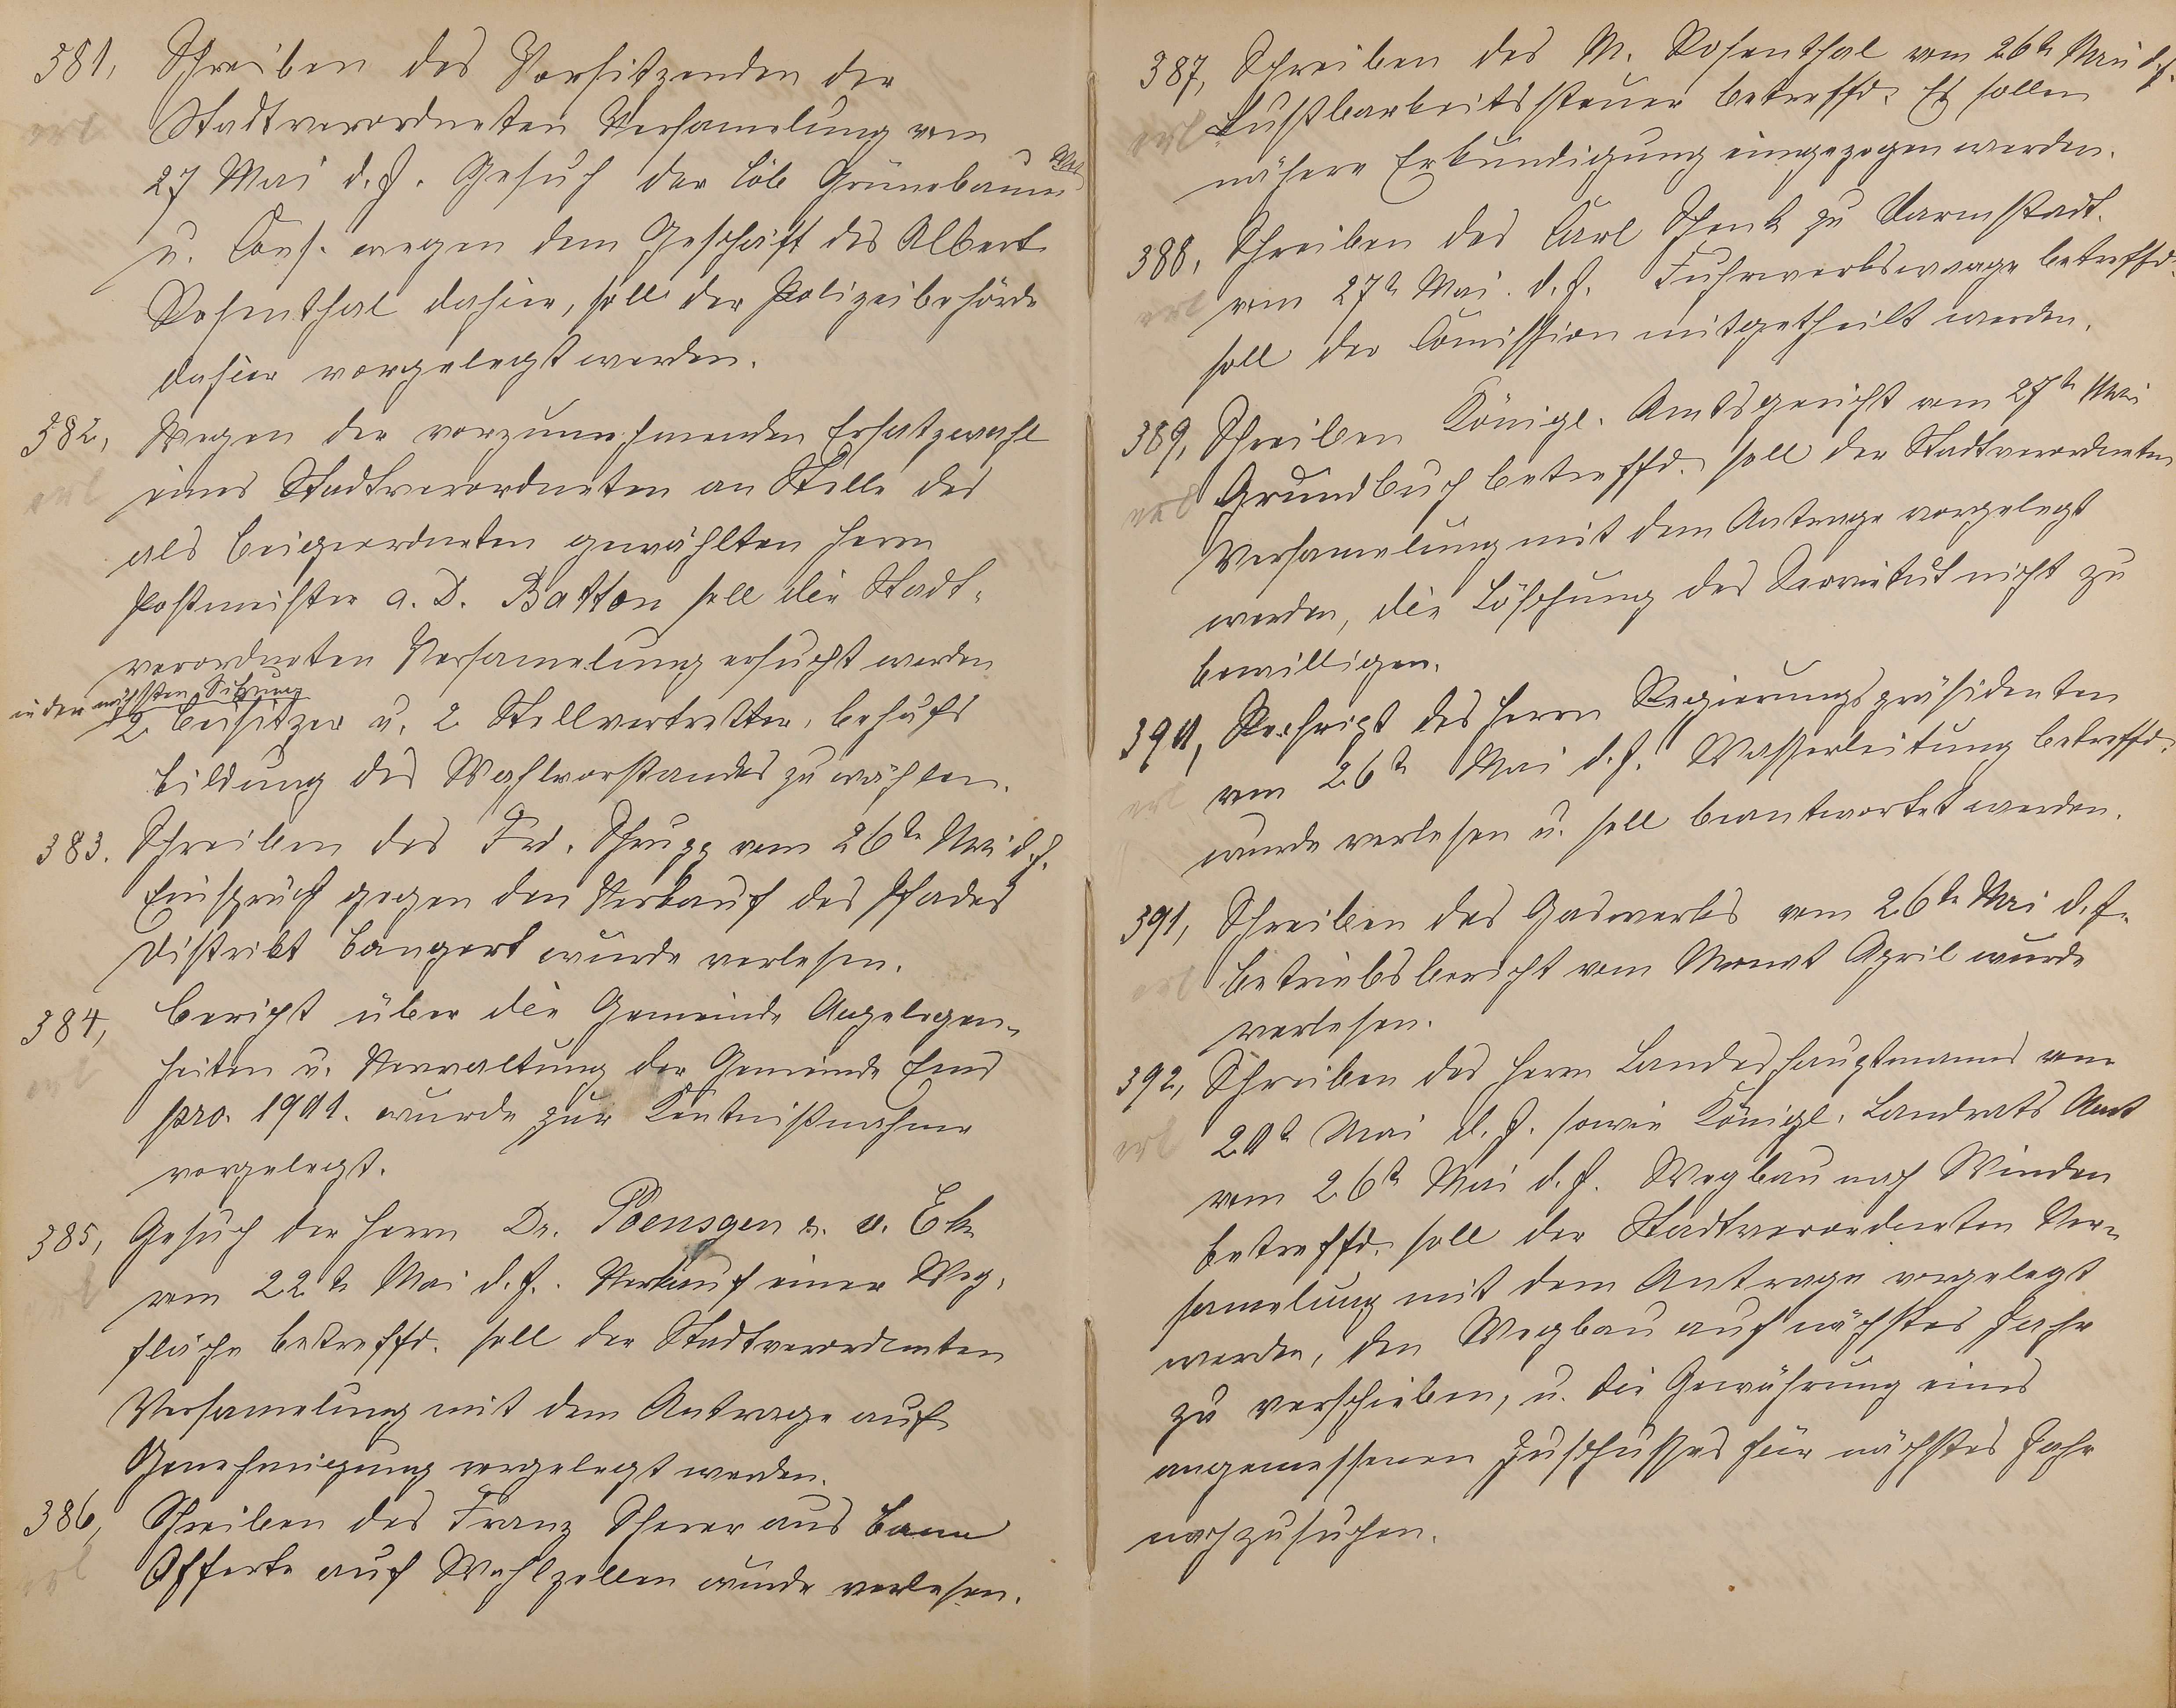 381, Schreiben des Vorsitzenden der
Stadtverordneten Versamelung vom
27 Mai d. J. Gesuch der Löb Grünebaum Wwe
u. Cons. wegen dem Geschäft des Albert
Rosenthal dahier, soll der Polizeibehörde
dahier vorgelegt werden.
382, Wegen der vorzunehmenden Ersatzwahl
eines Stadtverordneten an Stelle des
als Beigeordneten gewählten Herrn
Postmeister a. D. Batton soll die Stadt-
verordneten Versamelung ersucht werden
in der nächsten Sitzung
2 Beisitzer u. 2 Stellvertretter, behufs
Bildung des Wahlvorstandes zu wählen.
383. Schreiben des Frd. Schupp vom 26te Mai d. J.
Einspruch gegen den Verkauf des Pfades
Distrikt Bangert wurde verlesen.
384, Bericht über die Gemeinde Angelegen-
heiten u. Verwaltung der Gemeinde Ems
pro. 1901. wurde zur Kentnißnahme
vorgelegt.
385, Gesuch der Herrn Dr. Poensgen u. v. Ek
vom 22te Mai d. J. Verkauf einer Weg-
fläche betreffd. soll der Stadtverordneten
Versamelung mit dem Antrage auf
Genehmigung vorgelegt werden.
386, Schreiben des Franz Scherer aus
Offerte auf Wahlzellen wurde verlesen.
387, Schreiben des M. Rosenthal vom 26te Mai d. J.
Lustbarkeitssteuer betreffd. Es sollen
nähere Erkundigung eingezogen werden.
388, Schreiben des Carl Schenk zu Darmstadt.
vom 27te Mai. d. J. Fuhrwerkswaage betreffd.
soll der Comission mitgetheilt werden.
389, Schreiben Königl. Amtsgericht vom 27te Mai
Grundbuch betreffd. soll der Stadtverordneten
Versamelung mit dem Antrage vorgelegt
werden, die Löschung des Servietut nicht zu
bewilligen.
390, Reskript des Herrn Regierungspräsidenten
vom 26te Mai d. J. Wasserleitung betreffd.
wurde verlesen u. soll beantwortet werden.
391, Schreiben des Gaswerks vom 26te Mai d. J.
Betriebsbericht vom Monat April wurde
verlesen.
392, Schreiben des Herrn Landeshauptmanns vom
20te Mai d. J. sowie Königl. Landrats Amt
vom 26te Mai d. J. Wegbau nach Winden
betreffd. soll der Stadtverordneten Ver-
samelung mit dem Antrage vorgelegt
werden, den Wegbau auf nächstes Jahr
zu verschieben, u. die Gewährung eines
angemessenen Zuschusses für nächstes Jahr
nachzusuchen.